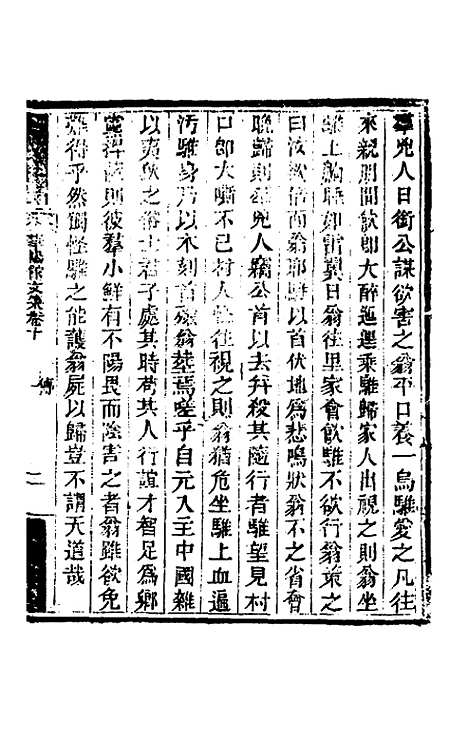 羣兇人日銜公謀欲害之翁平日養一烏騅愛之凡往
來親朋間飲卽大醉迤邐乘騅歸家人出視之則翁坐
騅上齁睡如雷異日翁往里家會飲騅不欲行翁策之
曰汝欲倍而翁耶騅以首伏地爲悲鳴狀翁不之省會
晚歸則羣兇人竊公首以去幷殺其隨行者騅望見村
口卽大嘶不已村人怪往視之則翁猶危坐騅上血遍
汚騅身乃以木刻首殯翁葬焉嗟乎自元入主中國雜
以夷狄之俗士君子處其時苟其人行誼才智足爲鄉
黨稗則彼羣小鮮有不陽畏而陰害之者翁雖欲免
得乎然獨怪騅之能護翁屍以歸豈不謂天道哉
文集卷十
傳
二